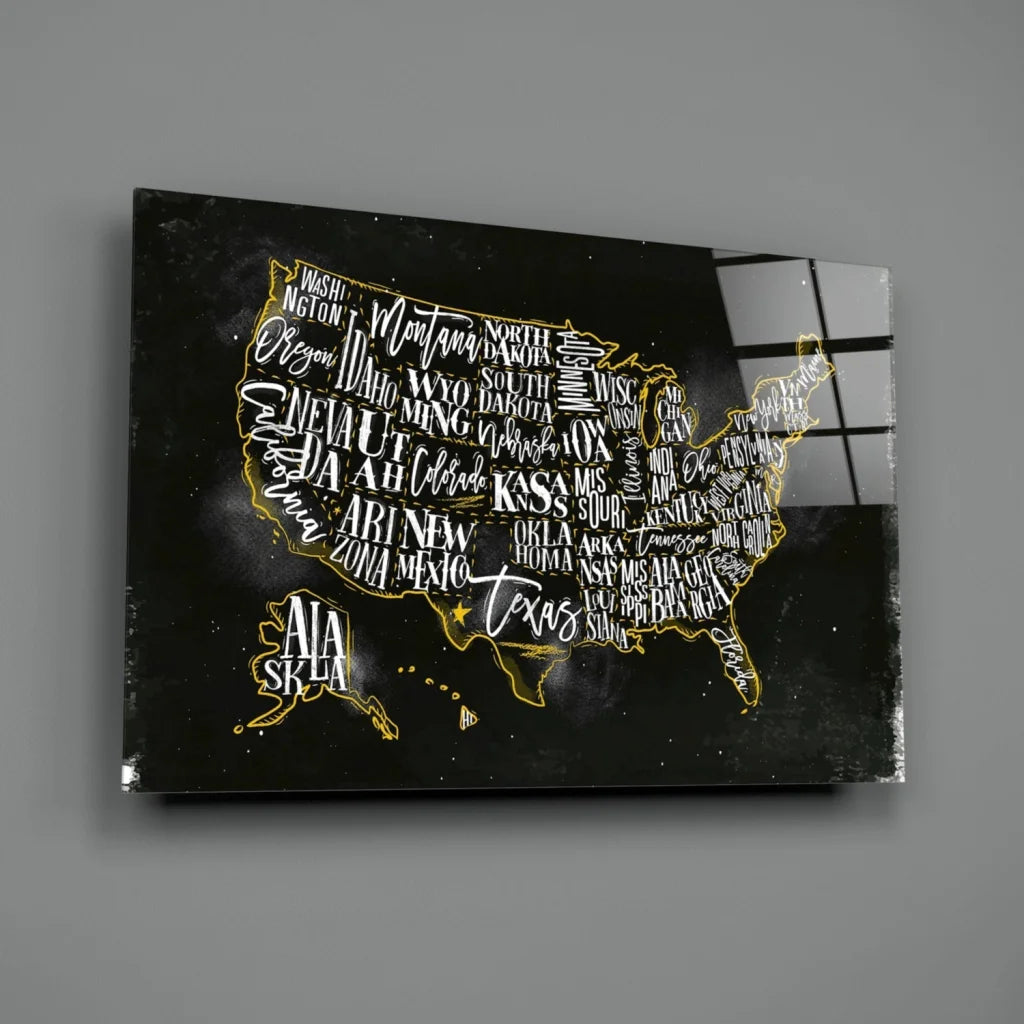 WASHI
NGTON
Oregon
California
IDAHO
NEVA
DA
Montana
WYO
MING
UT
AH
Colorado
ARI
ZONA
NEW
MEXICO
NORTH
DAKOTA
SOUTH
DAKOTA
Nebraska
KAN
SAS
OKLA
HOMA
Texas
MINNESOTA
IOW
A
MIS
SOURI
ARKA
NSAS
LOUI
SIANA
WISC
ONSIN
Illinois
MI
CHI
GAN
INDI
ANA
Ohio
KENTUKY
Tennessee
MIS
SIS
SIP
PI
ALA
BAM
A
GEO
RGIA
Florida
NORTH CROLINA
VIRGINIA
New York
ALA
SKLA
HI